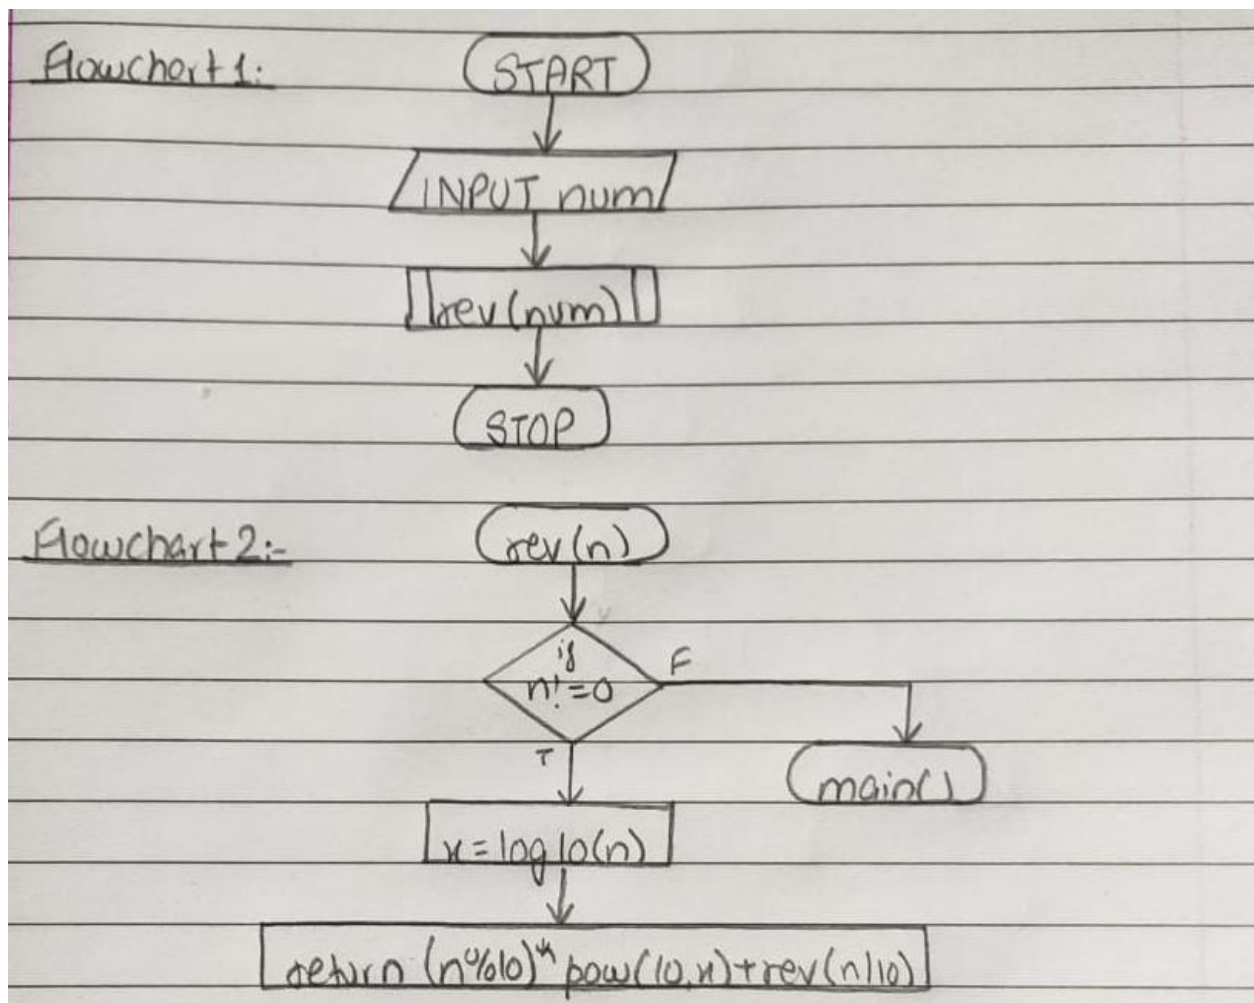 Flowchart 1:
START
INPUT num
rev(num)
STOP
Flowchart 2:-
rev(n)
if
n!=0
F
T
main()
x=log10(n)
return (n%10)*pow(10,x)+rev(n/10)